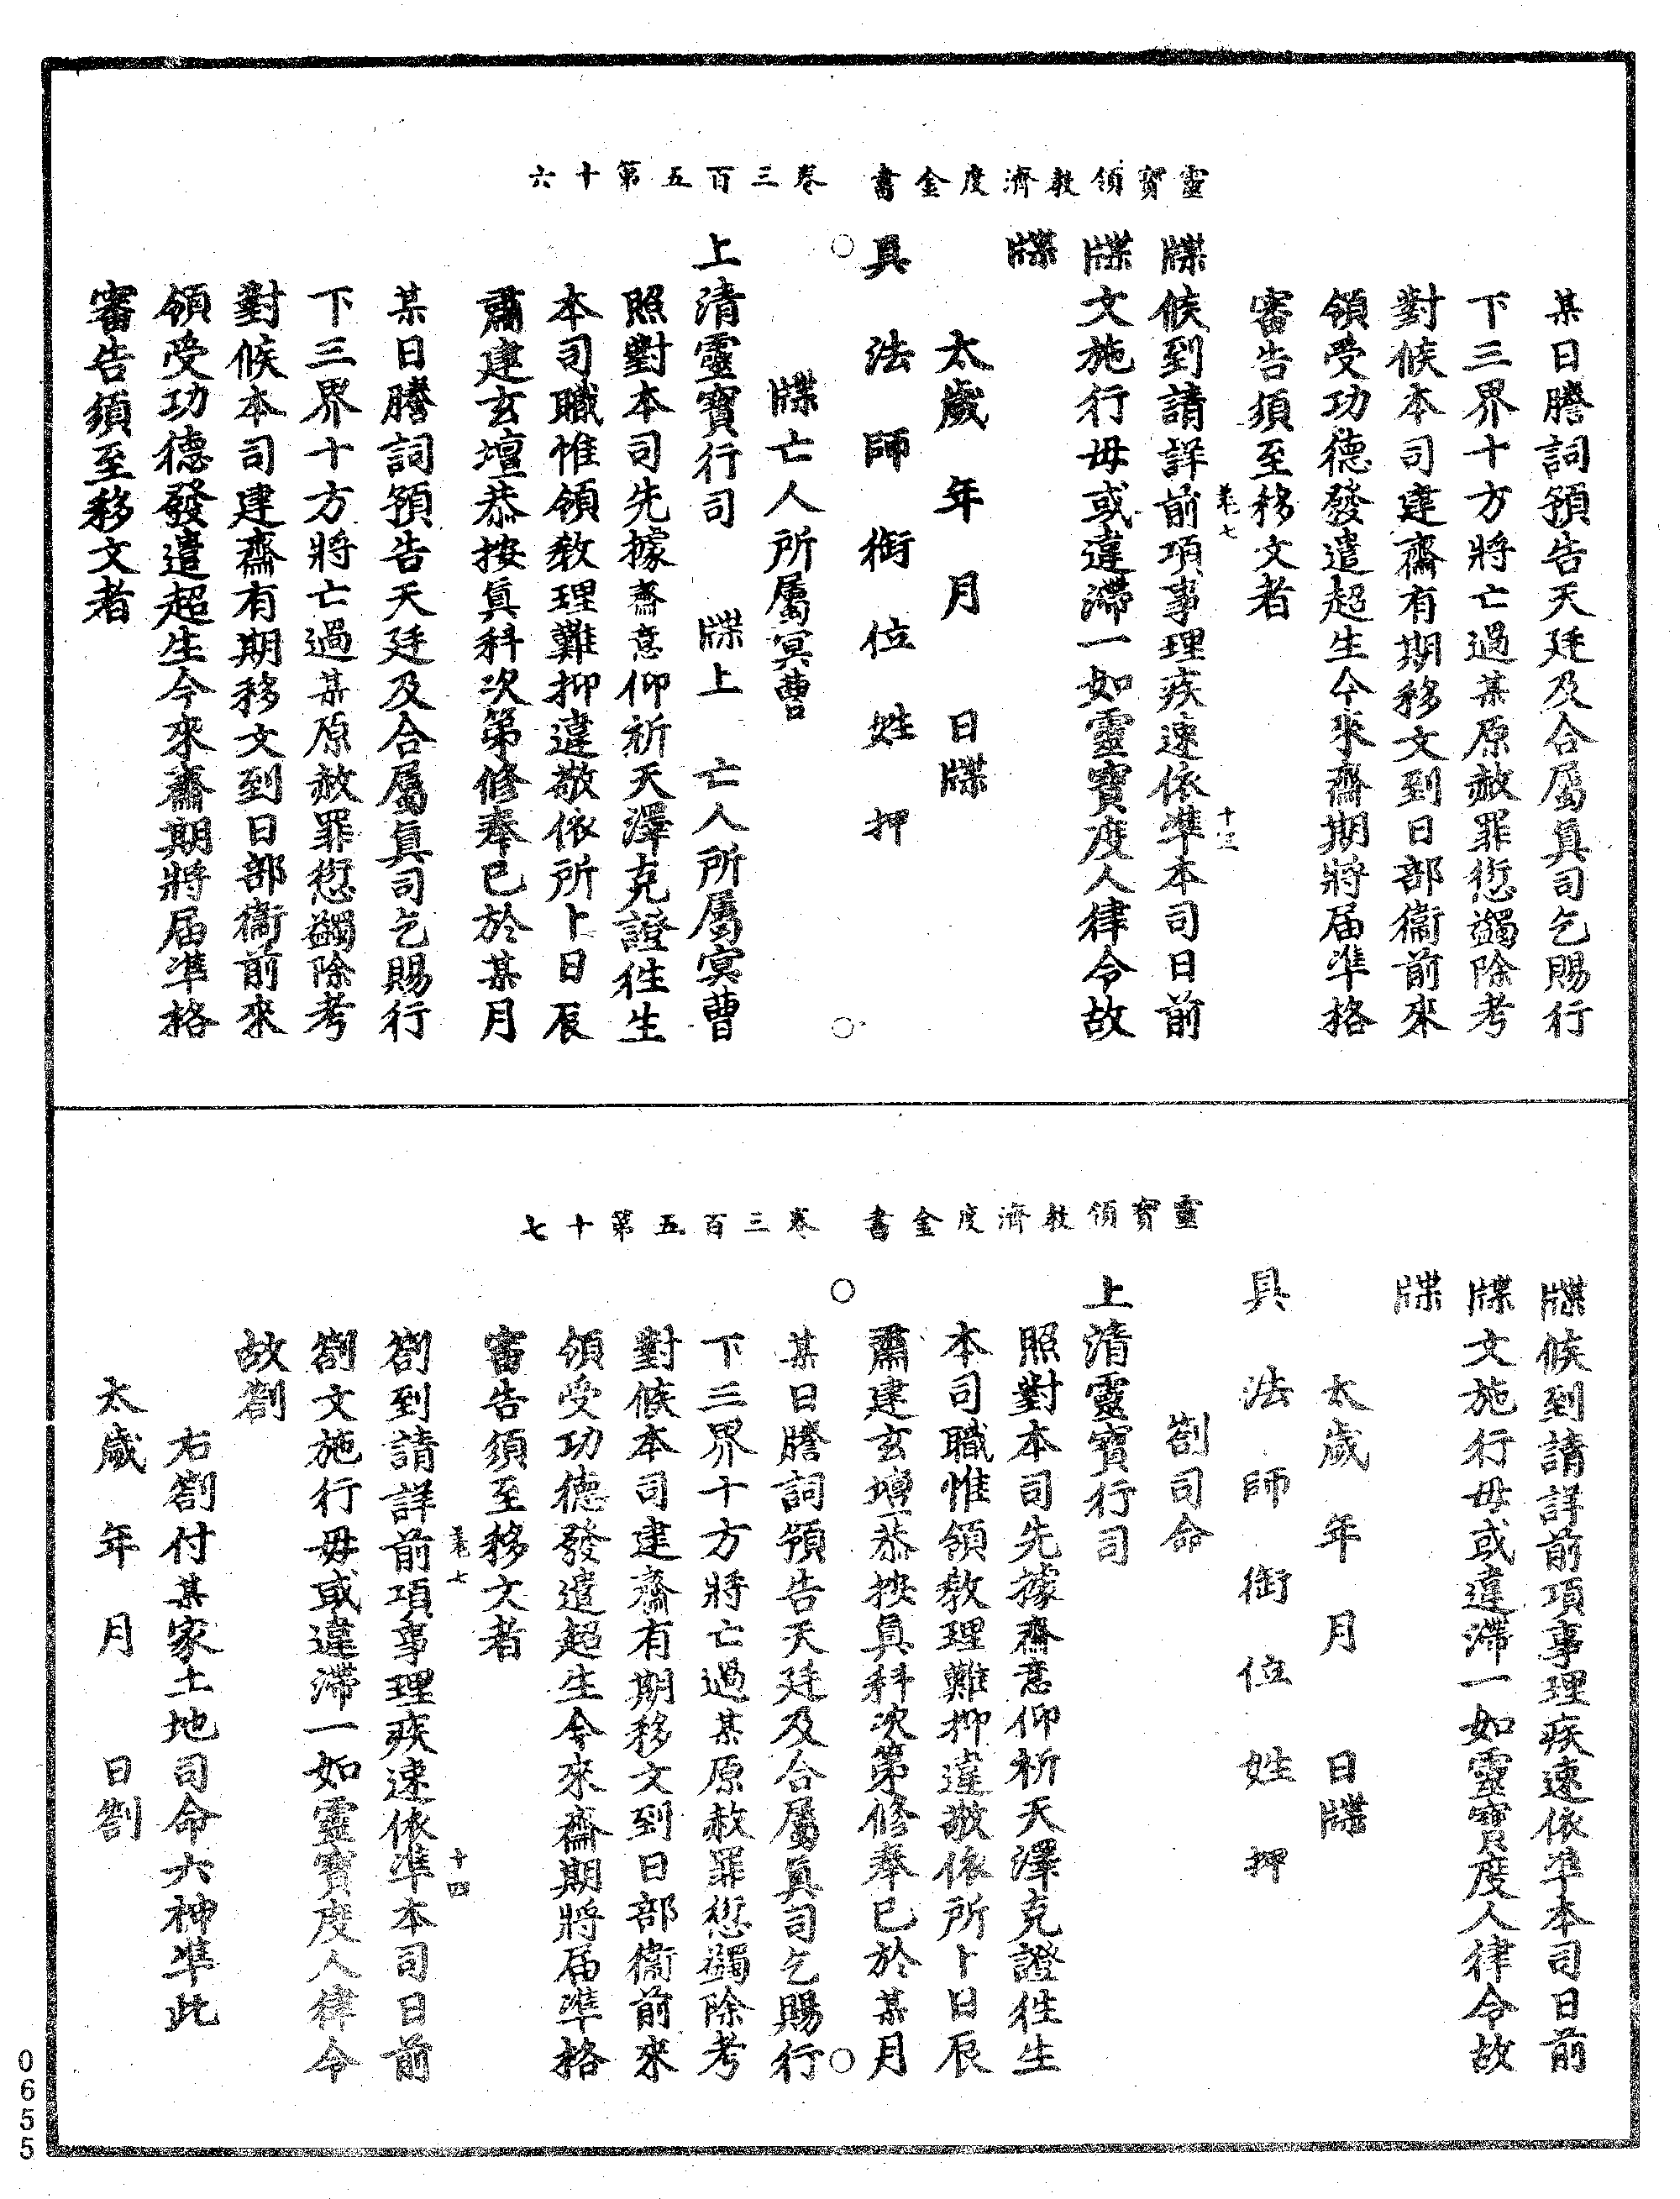 靈寶領教濟度金書　卷三百五第十六
某日謄詞預告天廷及合屬真司乞賜行
下三界十方將亡過某原赦罪愆蠲除考
對候本司建齋有期移文到日部衞前來
領受功德發遣超生今來齋期將届準格
審告須至移文者
牒候到請詳前項事理疾速依準本司日前
牒文施行毋或違滯一如靈寶度人律令故
牒
太歲　年　月　日牒
具　法　師　銜　位　姓　押
牒亡人所屬冥曹
上清靈寶行司　牒上　亡人所屬冥曹
照對本司先據齋意仰祈天澤克證徃生
本司職惟領敎理難抑違敬依所卜日辰
肅建玄壇恭按真科次第修奉已於某月
某日謄詞預告天廷及合屬真司乞賜行
下三界十方將亡過某原赦罪愆蠲除考
對候本司建齋有期移文到日部衞前來
領受功德發遣超生今來齋期將届準格
審告須至移文者
靈寶領教濟度金書　卷三百五第十七
牒候到請詳前項事理疾速依準本司日前
牒文施行毋或違滯一如靈寶度人律令故
牒
太歲　年　月　日牒
具　法　師　銜　位　姓　押
劄司命
上清靈寶行司
照對本司先據齋意仰祈天澤克證徃生
本司職惟領敎理難抑違敬依所卜日辰
肅建玄壇恭按真科次第修奉已於某月
某日謄詞預告天廷及合屬真司乞賜行
下三界十方將亡過某原赦罪愆蠲除考
對候本司建齋有期移文到日部衞前來
領受功德發遣超生今來齋期將届準格
審告須至移文者
劄到請詳前項事理疾速依準本司日前
劄文施行毋或違滯一如靈寶度人律令
故劄
右劄付某家土地司命六神準此
太歲　年　月　日劄
0655